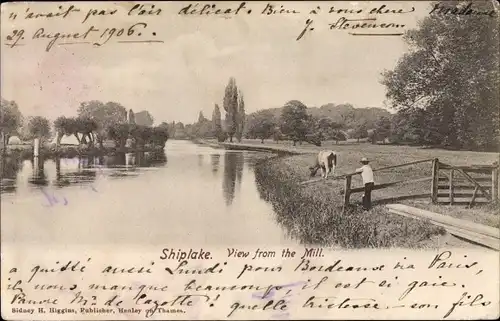 n'avait pas l'air délicat. Bien à vous chère Madame
29. August 1906. J. Stevenson
Shiplake. View from the Mill.
a quitté aussi Lundi pour Bordeaux via Paris,
nous manque beaucoup, il est si gai.
Pauvre Mr. de Lazotte! quelle tristesse. son fils
Sidney H. Higgins, Publisher, Henley on Thames.